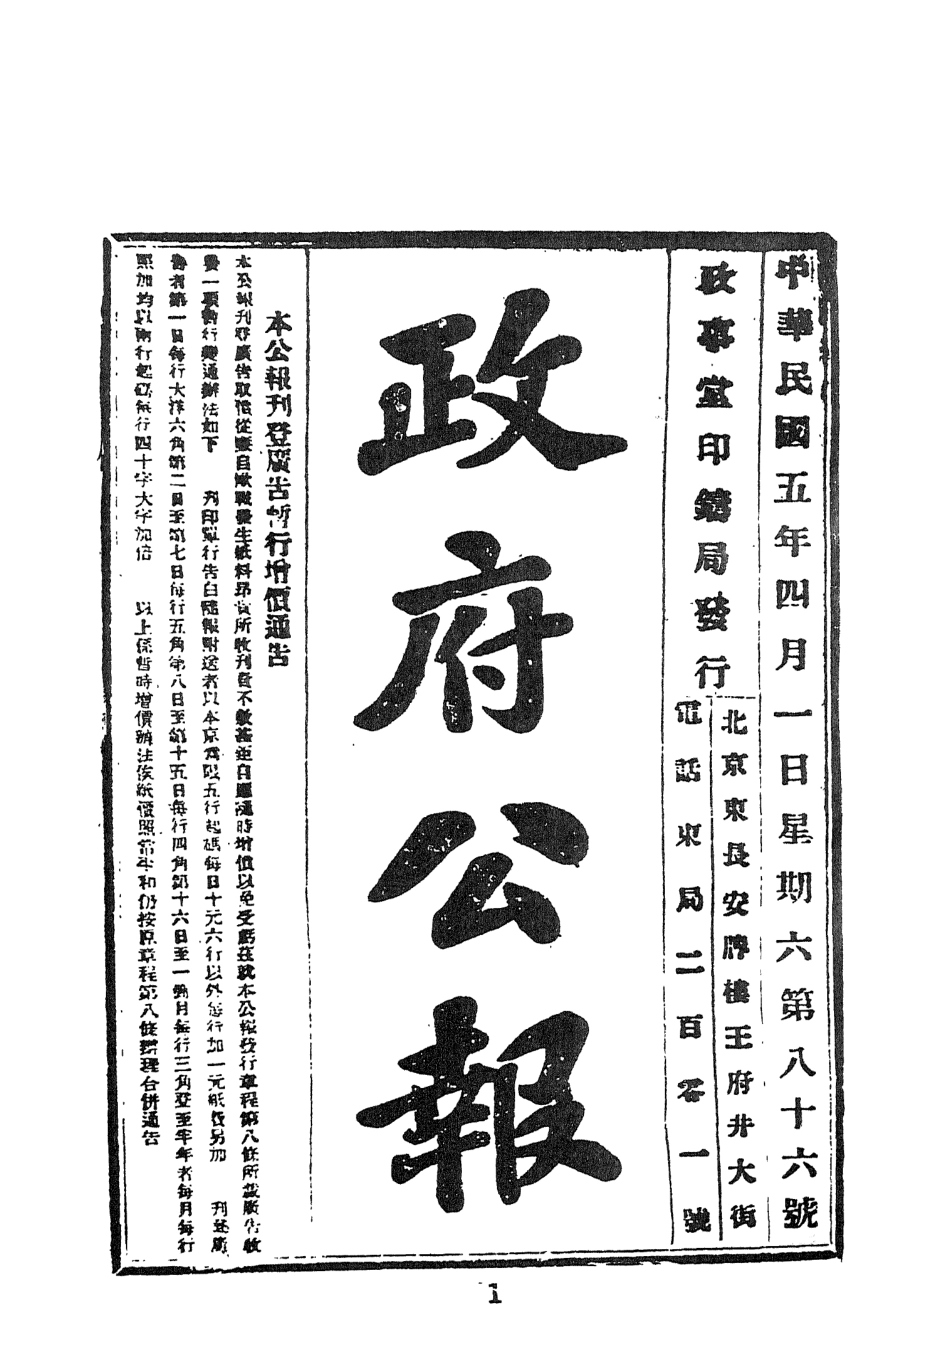 中華民國五年四月一日星期六第八十六號
政事堂印鑄局發行
北京東長安牌樓王府井大街
電話東局二百零一號
政府公報
本公報刊登廣告暫行增價通告
本公報刊登廣告取價從廉自歐戰發生紙料昂貴所收刊費不敷甚鉅自應隨時增價以免受虧茲就本公報發行章程第八條所載廣告收
費一項暫行變通辦法如下 刋印單行告白隨報附送者以本京為限五行起碼每日十元六行以外每行加一元紙費另加 刊登廣
告者第一日每行大洋六角第二日至第七日每行五角第八日至第十五日每行四角第十六日至一個月每行三角登至半年者每月每行
照加均以兩行起碼每行四十字大字加倍 以上係暫時增價辦法俟紙價照常平和仍按原章程第八條辦理合併通告
1